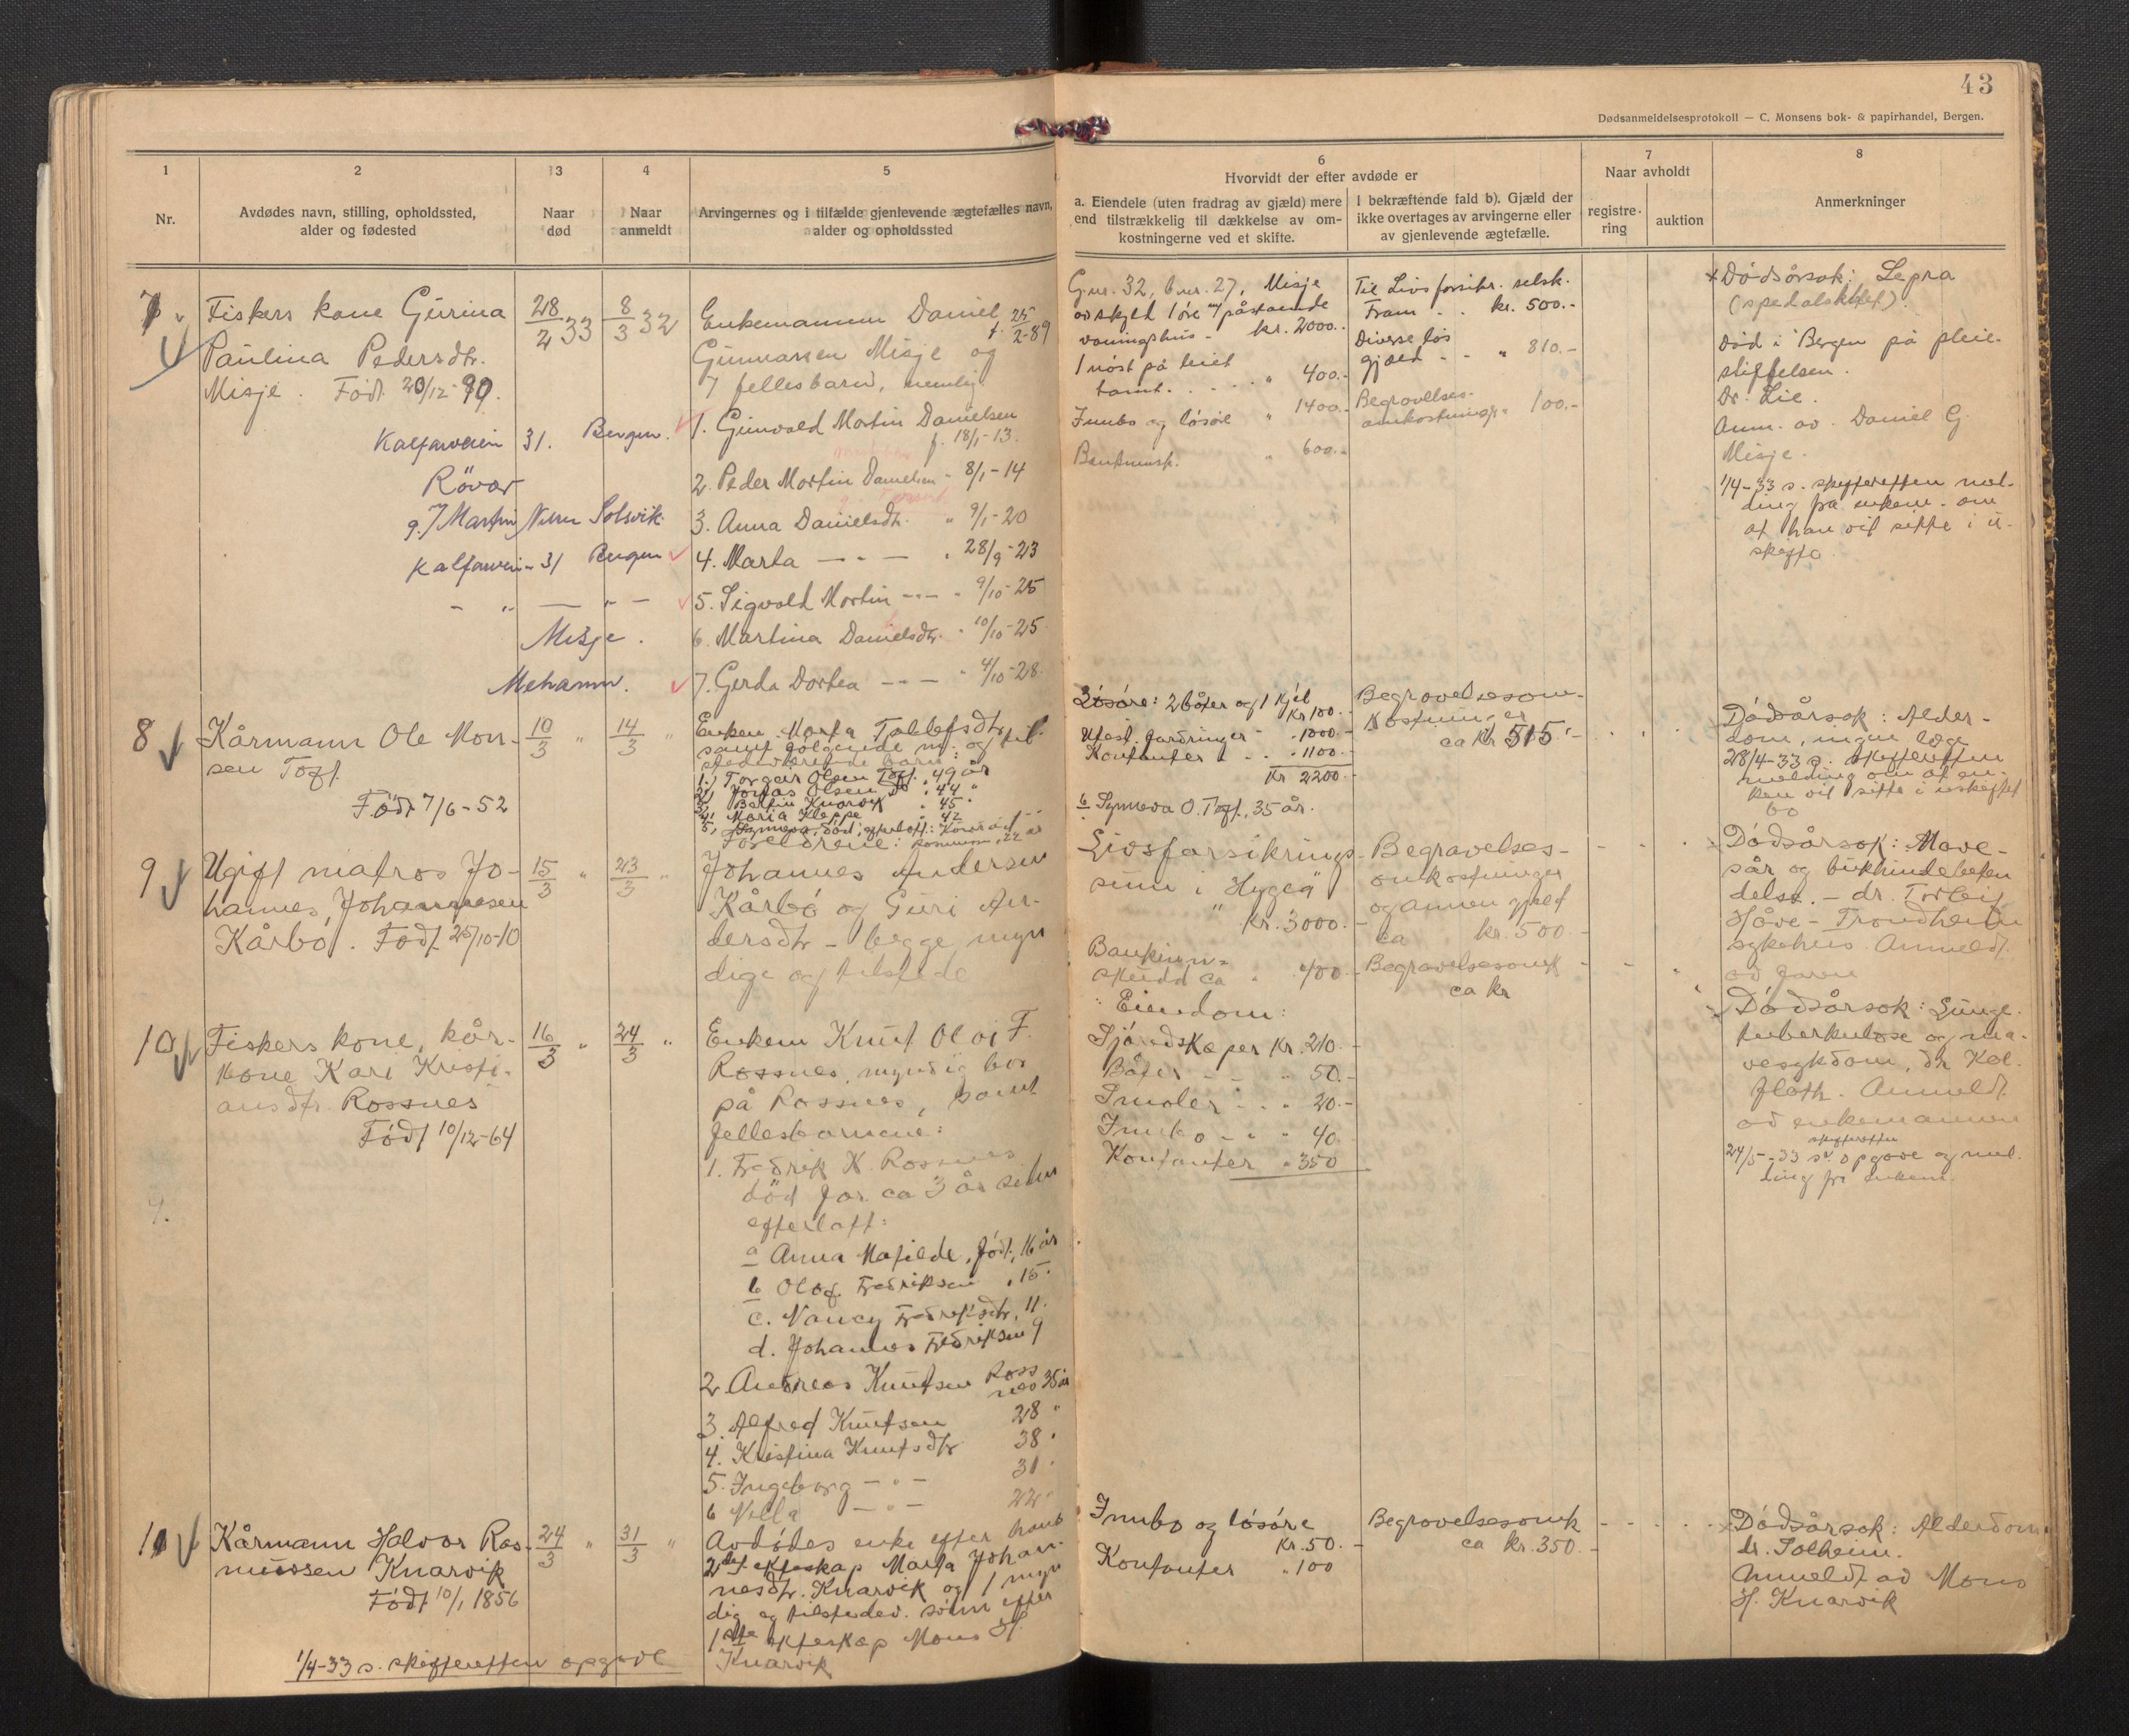 43
Dødsanmeldelsesprotokoll — C. Monsens bok- & papirhandel, Bergen.
1
Nr.
2
Avdødes navn, stilling, opholdssted,
alder og fødested
3
Naar
død
4
Naar
anmeldt
5
Arvingernes og i tilfælde gjenlevende ægtefælles navn,
alder og opholdssted
6
Hvorvidt der efter avdøde er
a. Eiendele (uten fradrag av gjæld) mere
end tilstrækkelig til dækkelse av om-
kostningerne ved et skifte.
I bekræftende fald b). Gjæld der
ikke overtages av arvingerne eller
av gjenlevende ægtefælle.
7
Naar avholdt
registre-
ring
auktion
8
Anmerkninger
7
Fiskers kone Gurina
Paulina Pedersdtr.
Misje. Født 20/12-90.
28/2 33
8/3 32
Enkemannn Daniel
f. 25/2-89
Gunnarsen Misje og
7 fellesbarn, nemlig
1. Gunvald Martin Danielsen
f. 18/1-13.
2. Peder Martin Danielsen - 8/1-14
3. Anna Danielsdtr. " 9/1-20
4. Marta — " — " 28/9-23
5. Sigvald Martin — " — " 9/10-25
6. Martina Danielsdtr. " 10/10-25
7. Gerda Dortea — " — " 4/10-28
Kalfarveien 31. Bergen.
Røvær
g. / Martin Nilsen Solsvik
Kalfarveien 31 Bergen
- " — " -
Misje.
Mehamn.
G.nr. 32, b.nr. 27, Misje
avskyld 1 øre m/ påstående
våningshus - kr. 2000.-
1 nøst på leiet
tomt. . . . . " 400.-
Innbo og løsøre " 1400.-
Bankinnsk. " 600.-
Til Livsforsikr. selsk.
Fram . . kr. 500.-
Diverse løs
gjæld - - " 810.-
Begravelses-
omkostninger " 100.-
Dødsårsak: Lepra
(spedalskhet).
Død i Bergen på pleie-
stiftelsen.
Dr. Lie.
Anm. av Daniel G.
Misje.
1/4-33 s. skifteretten mel-
ding fra enkem. om
at han vil sitte i u-
skifte.
8
Kårmann Ole Mon-
sen Toft
Født 7/6-52
10/3 "
14/3 "
Enken Marta Tollefsdtr.
samt følgende m. og til-
stedeværende barn:
1.) Torger Olsen Toft, 49 år
2) Jonas Olsen do " 44 "
3, Bertin Knarvik " 45 "
4, Maria Kleppe " 42
5, Synneva, død, efterlatt:
6 Synneva O. Toft, 35 år.
Løsøre: 2 båter og 1 kjel
Kr 100.-
Utest. fordringer - " 1000.-
Kontanter - - " 1100.-
Kr 2200.-
Begravelsesom-
kostninger
ca Kr 515.-
Dødsårsak: Alder-
dom, ingen læge
28/4-33 s. skifteretten
melding om at en-
ken vil sitte i uskiftet
bo
9
Ugift matros Jo-
hannes Johannesen
Kårbø. Født 25/10-10
15/3 "
23/3 "
Foreldrene:
Johannes Andersen
Kårbø og Guri An-
dersdtr - begge myn
dige og tilstede
Livsforsikrings-
sum i "Hygea"
kr. 3000.-
Bankinn-
skudd ca " 400.-
Begravelses-
omkostninger
og annen gjeld
ca kr. 500.-
Dødsårsak: Mave-
sår og bukhindebeten
delse. - dr. Torleif
Håve - Trondheim
sykehus. Anmeldt
av faren
10
Fiskers kone, kår-
kone Kari Kristi-
ansdtr. Rossnes
Født 10/12-64
16/3 "
24/3 "
Enkem Knut Olai F.
Rossnes, myndig bor
på Rossnes, samt
fellesbarnene:
1. Fredrik K. Rossnes
død for ca 3 år siden
efterlatt:
a Anna Matilde, født, 16 år
b Olaf Fredriksen " 15 "
c. Nancy Fredriksdtr, 11 "
d. Johannes Fredriksen 9
2 Andreas Knutsen Ross
nes 35 år
3. Alfred Knutsen 28 "
4. Kristina Knutsdtr 38 "
5. Ingeborg — " — 31 "
6 Nilla — " — 22 "
Eiendom:
Sjøredskaper Kr. 210.-
Båter - - " 50.-
Smaler - - " 20.-
Innbo - " " 40.
Kontanter " 350
Begravelsesomk
ca kr
Dødsårsak: Lunge-
tuberkulose og ma-
vesykdom, dr Kol-
flåth. Anmeldt
av enkemannen
24/5-33 s. skifteretten opgave og mel-
ding fr enkem.
11
Kårmann Halvor Ras-
mussen Knarvik
Født 10/1 1856
24/3 "
31/3 "
Avdødes enke efter hans
2det ekteskap Marta Johan-
nesdtr. Knarvik og 1 myn
dig og tilstedev. sønn efter
1ste ekteskap Mons H.
Knarvik
Innbo og løsøre
Kr. 50.-
Kontanter " 100
Begravelsesomk
ca kr. 350.-
Dødsårsak: Alderdom
dr. Solheim.
Anmeldt av Mons
H. Knarvik
1/4-33 s. skifteretten opgave